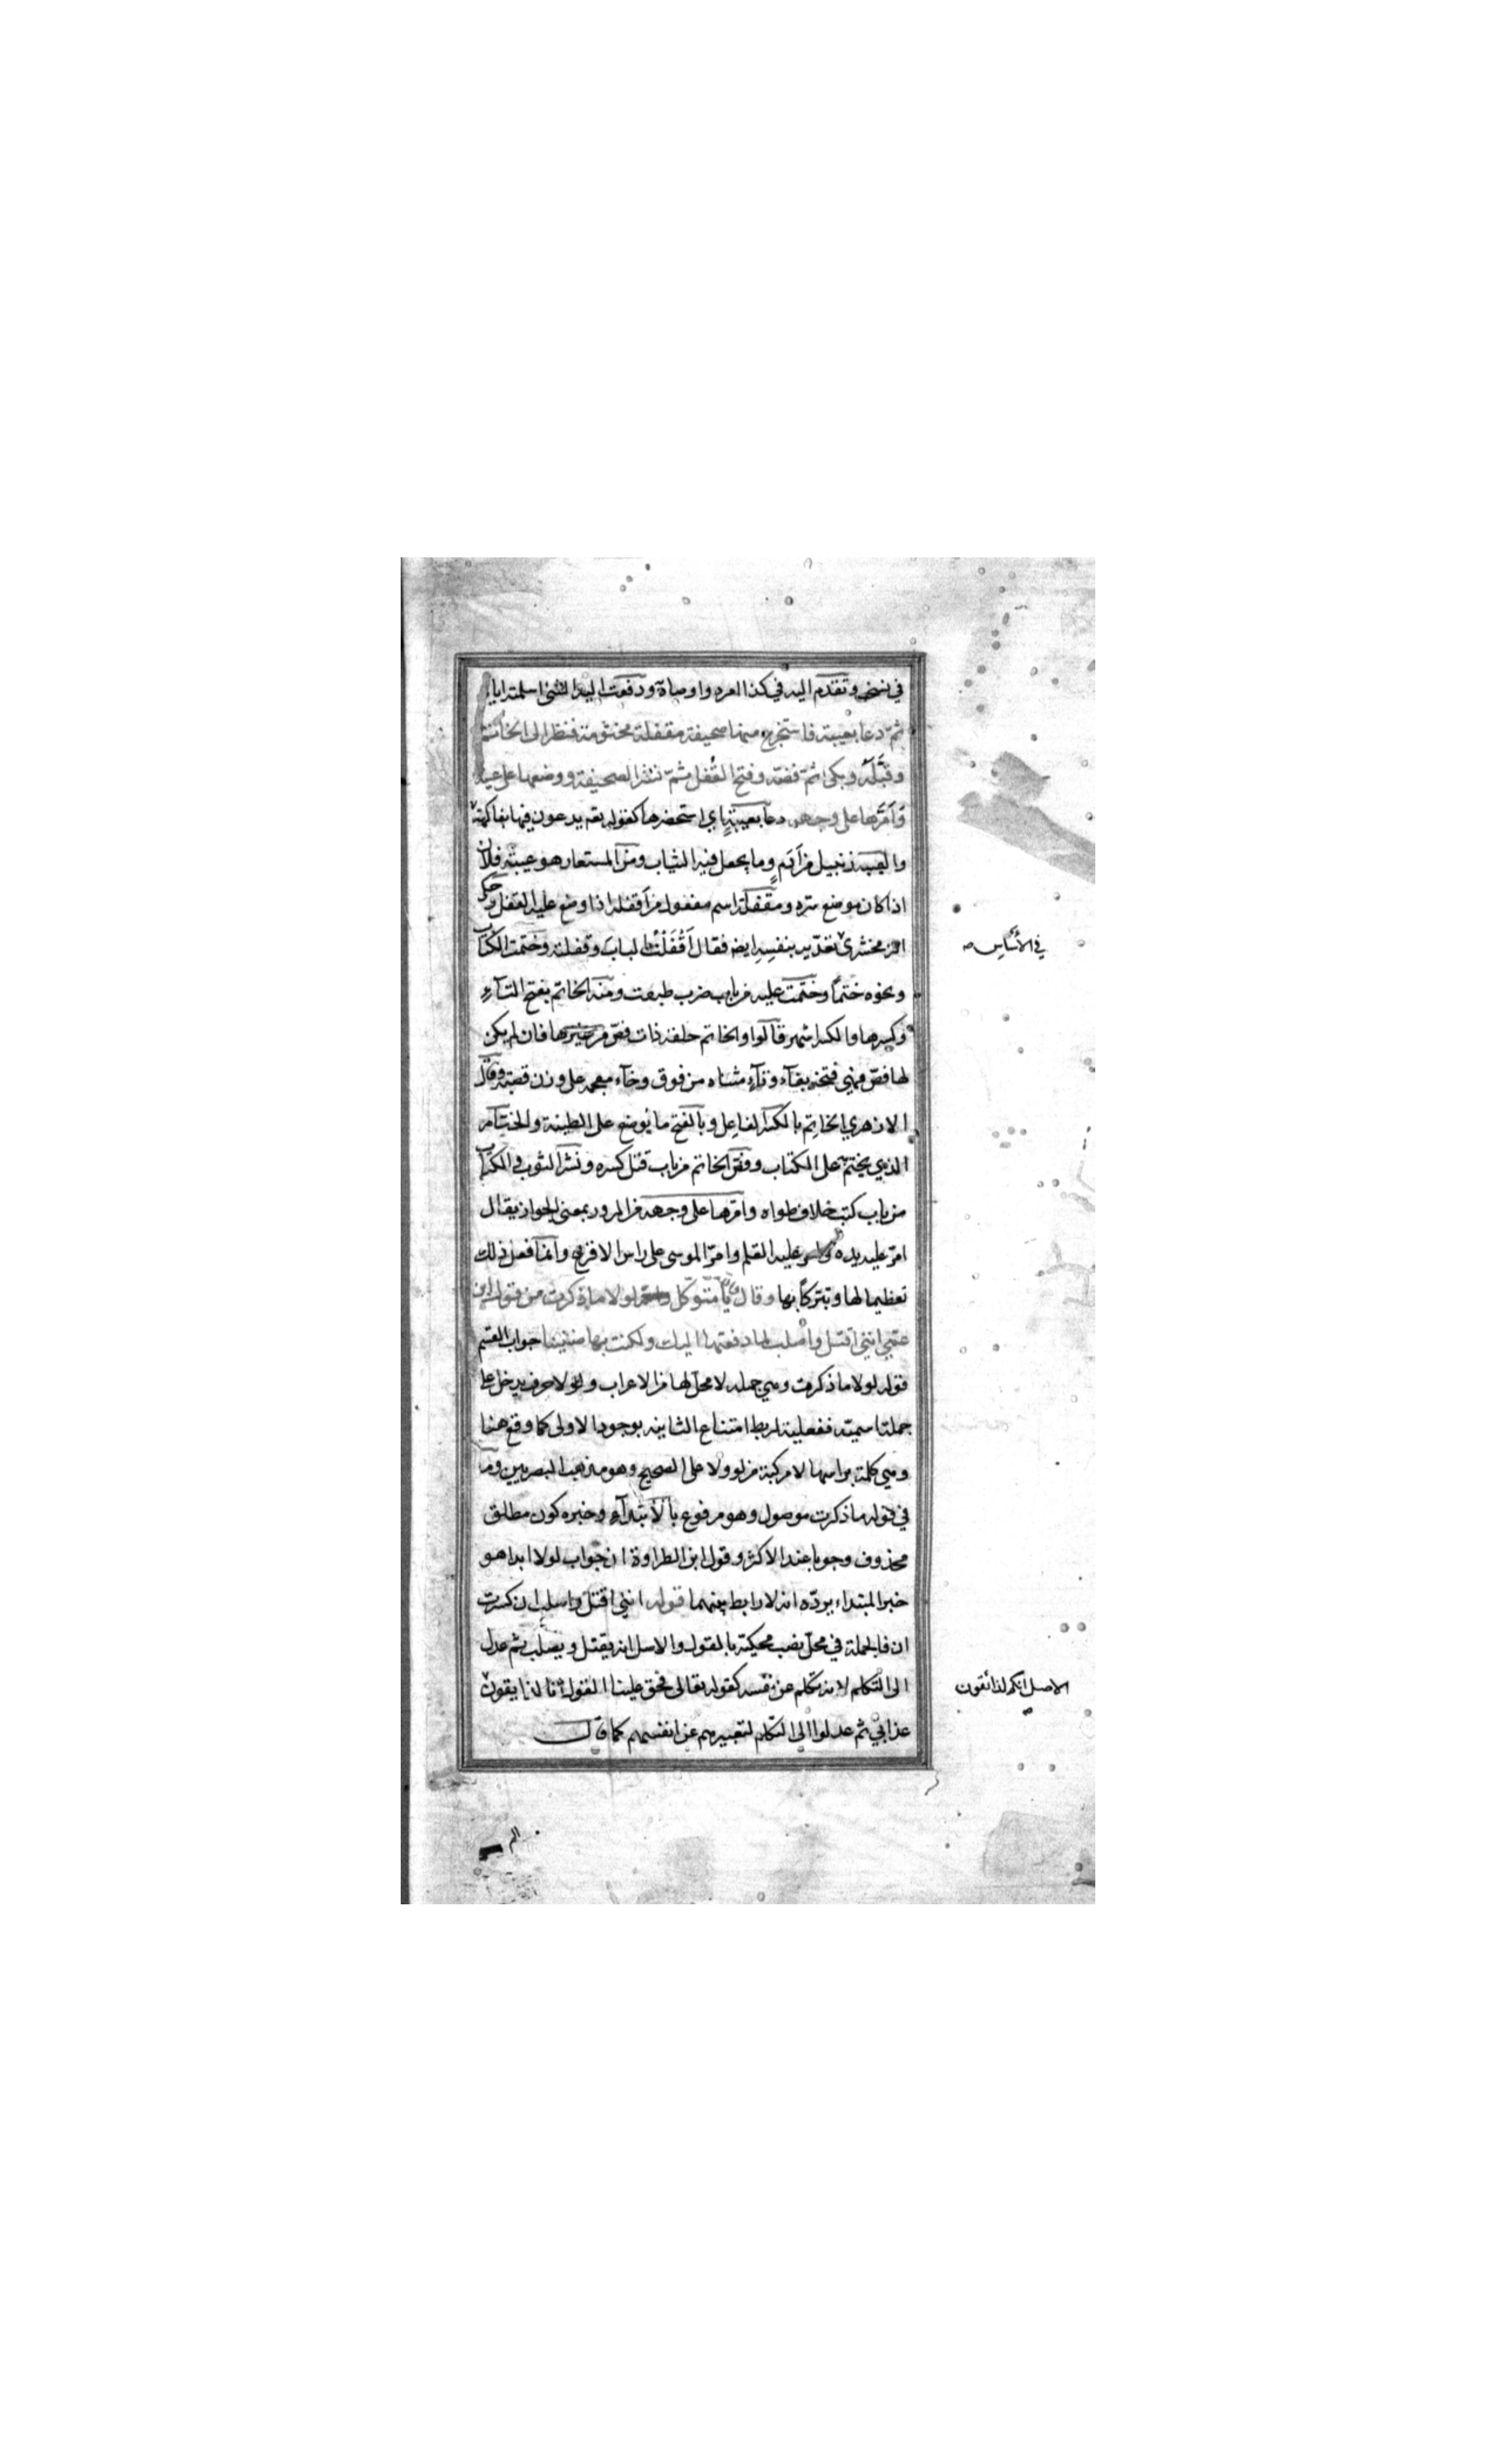 في نسخه وتقدم اليه في كذا امره واوصاه ودفعت اليه الشئ اسلمته اياه
ثم دعا بعيبة فاستخرج منها صحيفة مقفلة مختومة فنظر الى الخاتم
وقبّله وبكى ثم فضه وفتح القُفل ثم نشر الصحيفة ووضعها على عينه
وَاَمَرّها على وجهه دعا بعيبة اي استحضرها كقوله تعه يدعون فيها بفاكهة
والعيبه زنبيل من اَدَم وما يجعل فيه الثياب ومن المستعار هو عيبة فلان
اذا كان موضع سره ومقفلة اسم مفعول من اَقفله اذا وضع عليه القفل وحكى
الزمخشري تعديه بنفسه ايضه فقال اَقْفَلْتُ الباب وقفلته وختمت الكتاب
في الأساس
ونحوه ختماً وختمت عليه من باب ضرب طبعت ومنه الخاتم بفتح التآء
وكسرها والكسر اشهر قالوا والخاتم حلقة ذات فص من غيرها فان لم يكن
لها فص فهي فتخة بفآء وتآء مثناه من فوق وخآء معجمه على وزن قصبة وقال
الازهري الخاتِم بالكسر الفاعِل وبالفتح ما يُوضع على الطينة والختام
الذي يختم على الكتاب وفض الخاتم من باب قتل كسره ونشر الثوب والكتاب
من باب كتب خلاف طواه وامرها على وجهه من المرور بمعنى الجواز يقال
امرّ عليه يده وامر عليه القلم وامرّ الموسى على راس الاقرع وانما فعل ذلك
تعظيما لها وتبركاً بها وقال يا متوكل لولا ما ذكرت من قول ابن
عمي انني اقتل واصلب لما دفعتها اليك ولكنت بها ضنينا جواب القسم
قوله لولا ما ذكرت وهي جمله لا محل لها من الاعراب ولولا حرف يدخل على
جملة اسميته ففعلية لربط امتناع الثانيه بوجود الاولى كما وقع هنا
وهي كلمة براسها لا مركبة من لو ولا على الصحيح وهو مذهب البصريين وما
في قوله ما ذكرت موصول وهو مرفوع بالأبتدآء وخبره كون مطلق
محذوف وجوبا عند الاكثر وقول ابن الطراوة ان جواب لولا ابدا هو
خبر المبتداء يردّه انه لا رابط بينهما قوله انني اقتل واصلب ان كسرت
ان فالجملة في محل نصب محكية بالقول والاصل انه يقتل ويصلب ثم عدل
الى التكلم لانه متكلم عن نفسه كقوله تعالى فحق علينا القول انا لذايقون
الاصل انكم لذائقون
عذابي ثم عدلوا الى التكلم لتعبيرهم عن انفسهم كما قال